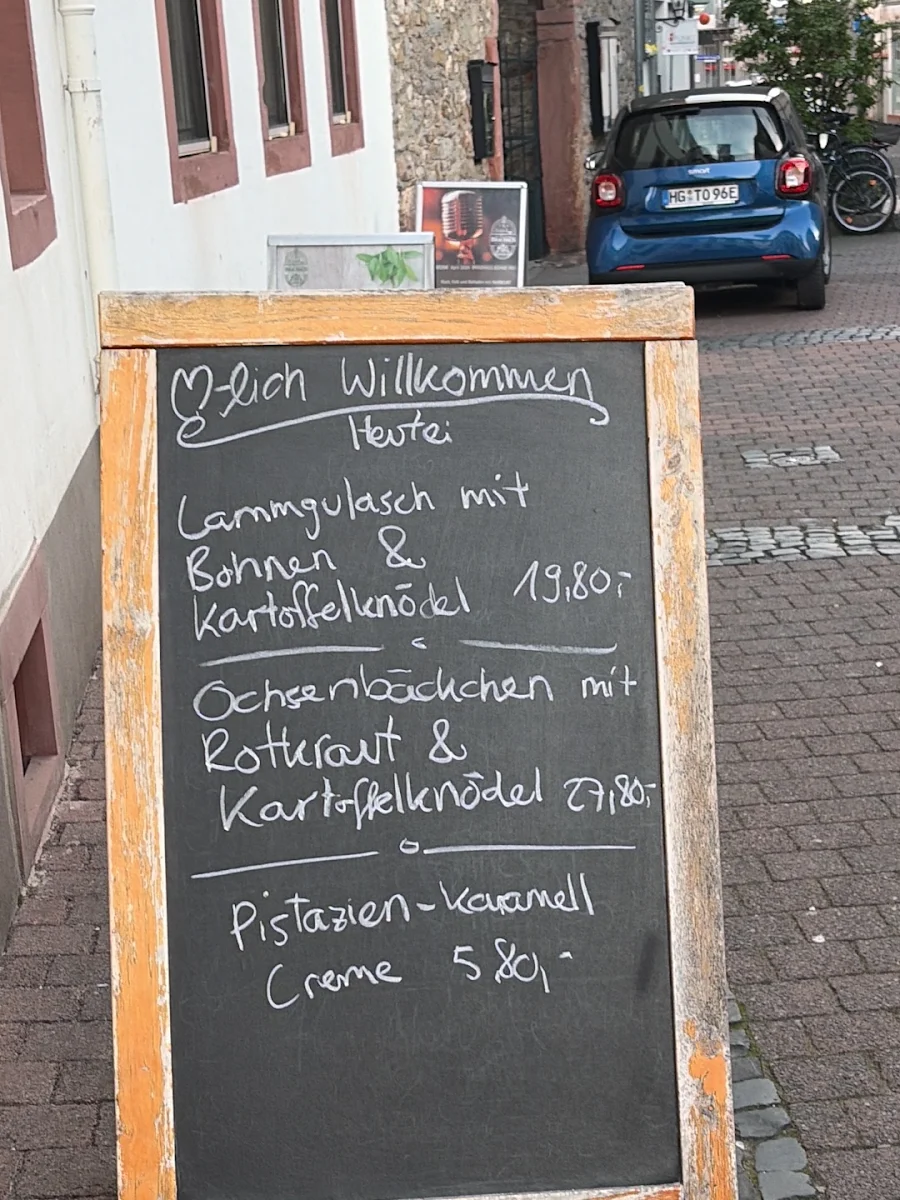 smart
HG TO 96E
♡-lich Willkommen
Heute:
Lammgulasch mit
Bohnen &
Kartoffelknödel 19,80,-
Ochsenbäckchen mit
Rotkraut &
Kartoffelknödel 27,80,-
Pistazien-Karamell
Creme 5,80,-